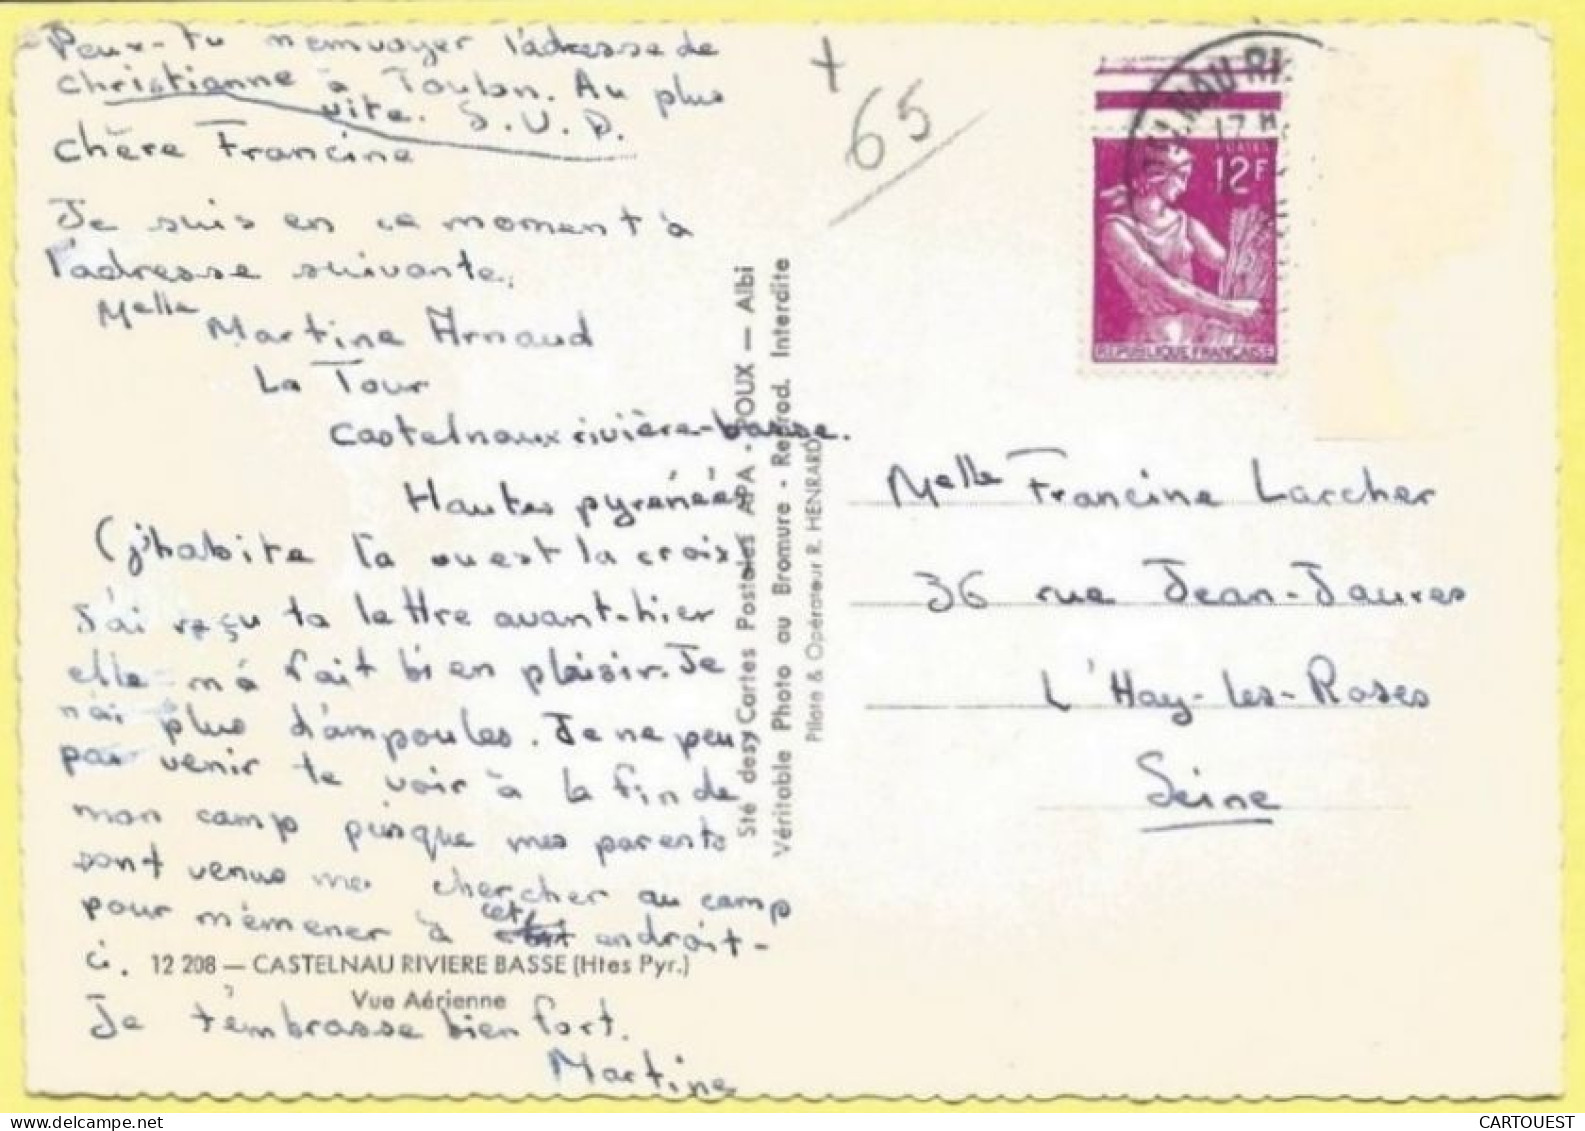 Peux-tu m'envoyer l'adresse de
christianne à Toulon. Au plus
vite. S.V.P.
chère Francine
Je suis en ce moment à
l'adresse suivante.
Melle Martine Arnaud
La Tour
Castelnaux rivière-basse.
Hautes pyrénées
(j'habite là ou est la croix
J'ai reçu ta lettre avant-hier
elle m'a fait bien plaisir. Je
n'ai plus d'ampoules. Je ne peux
pas venir te voir à la fin de
mon camp puisque mes parents
sont venus me chercher au camp
pour m'emener à cet endroit-
ci.
12 208 — CASTELNAU RIVIERE BASSE (Htes Pyr.)
Vue Aérienne
Je t'embrasse bien fort.
Martine
Sté des Cartes Postales APA - POUX — Albi
Véritable Photo au Bromure - Reprod. Interdite
Pilote & Opérateur R. HENRARD
+
65
NAU RI
17 H
POSTES
12F
REPUBLIQUE FRANÇAISE
Melle Francine Larcher
36 rue Jean-Jaures
L'Hay-les-Roses
Seine
CARTOUEST